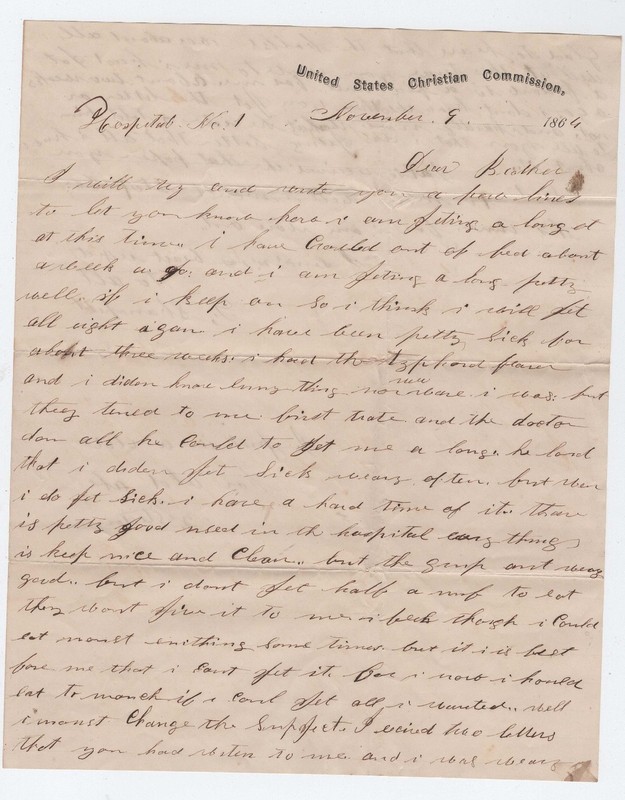 United States Christian Commission,
Hospital No. 1 November. 9. 1864
Dear Brother
I will try and write you a few lines
to let you know how i am geting a long at
at this time.. i have Craled out of bed about
a week a go. and i am geting a long petty
well. if i keep on so i think i will get
all right agane i have been petty Sick for
about three weeks. i had the typhord feaver
and i diden know enny thing nor ware i was: but
they tened to me birst rate and the doctor
don all he Could to get me a longe. he said
that i diden get Sick veary often. but wen
i do get Sick. i have a hard time of it. thare
is petty good used in th hospital evry things
is keep nice and Clean.. but the grup ant veary
good.. but i dont get half a nuf to eat
they wont give it to me. i feel though i Could
eat moust enithing some times. but it is best
fore me that i cant get it. for i now i should
eat to munch if i Coul get all i wanted.. well
i moust Change the Supject. I reived two letters
that you had writen to me and i was veary